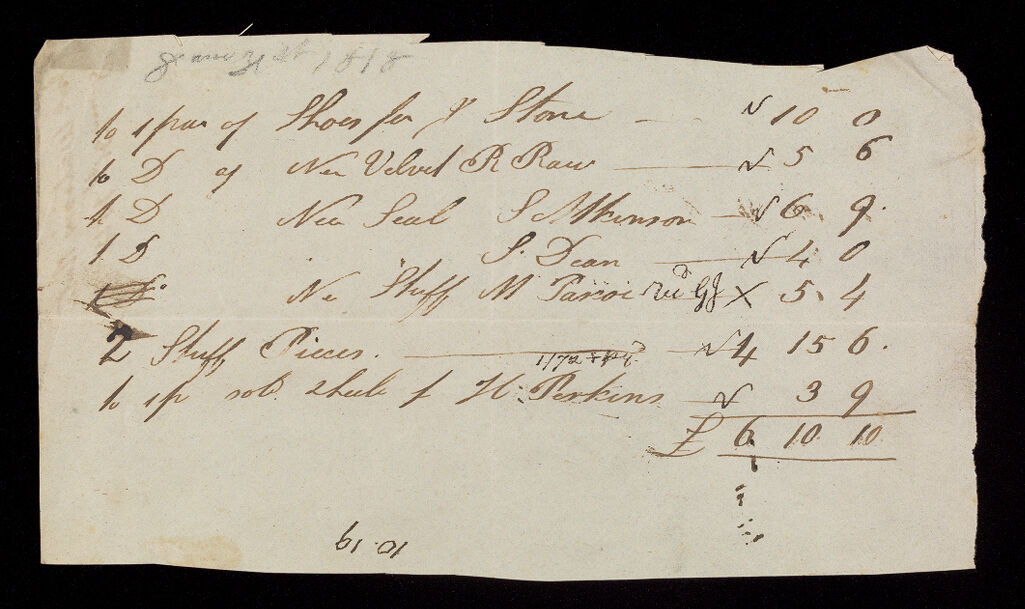 1818
to 1 pair of Shoes for J Stone — √ 10 0
to D of New Velvet R Raw — √ 5 6
1 D New Seal S Atkinson — √ 6 9.
1 D S. Dean — √ 4 0
Ne Stuff M Rec.d GJ X 5 4
2 Stuff Pieces. — √ 4 15 6.
to 1 pr f H. Perkins √ 3 9
£ 6 10 10
10.19